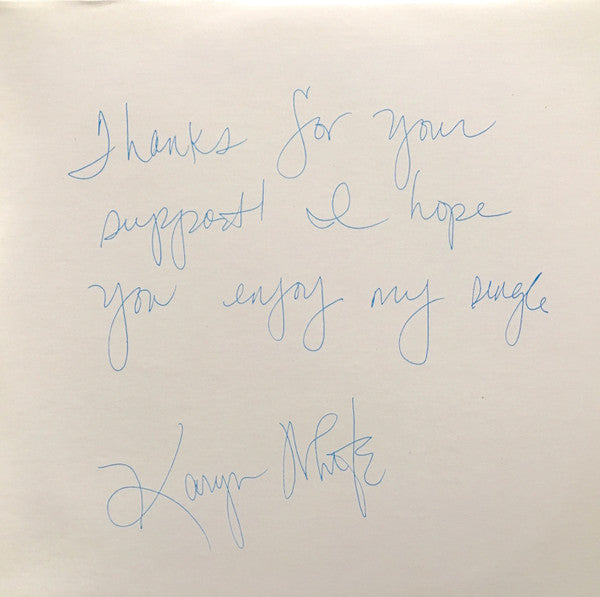 Thanks for your
support! I hope
you enjoy my single
Karyn White